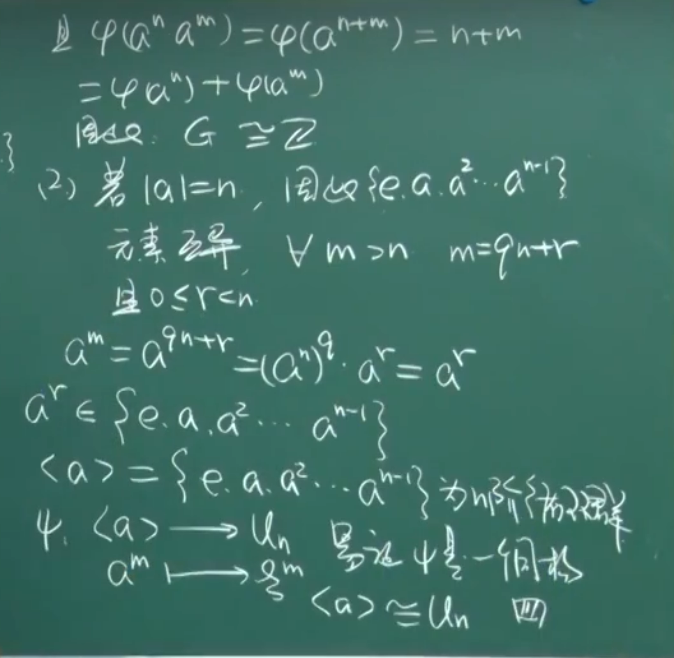 且 φ(aⁿ aᵐ) = φ(aⁿ⁺ᵐ) = n+m
= φ(aⁿ) + φ(aᵐ)
}
因此. G ≅ Z
(2) 若 |a|=n, 因此{e.a.a²…aⁿ⁻¹}
元素互异, ∀ m>n m=qn+r
且 0≤r<n.
aᵐ = a^{qn+r} = (aⁿ)^q · aʳ = aʳ
aʳ ∈ {e.a.a²… aⁿ⁻¹}
<a> = {e.a.a²…aⁿ⁻¹} 为n阶循环群
ψ. <a> ⟶ Uₙ 易证 ψ是一同构
aᵐ ⟼ ξᵐ
<a> ≅ Uₙ